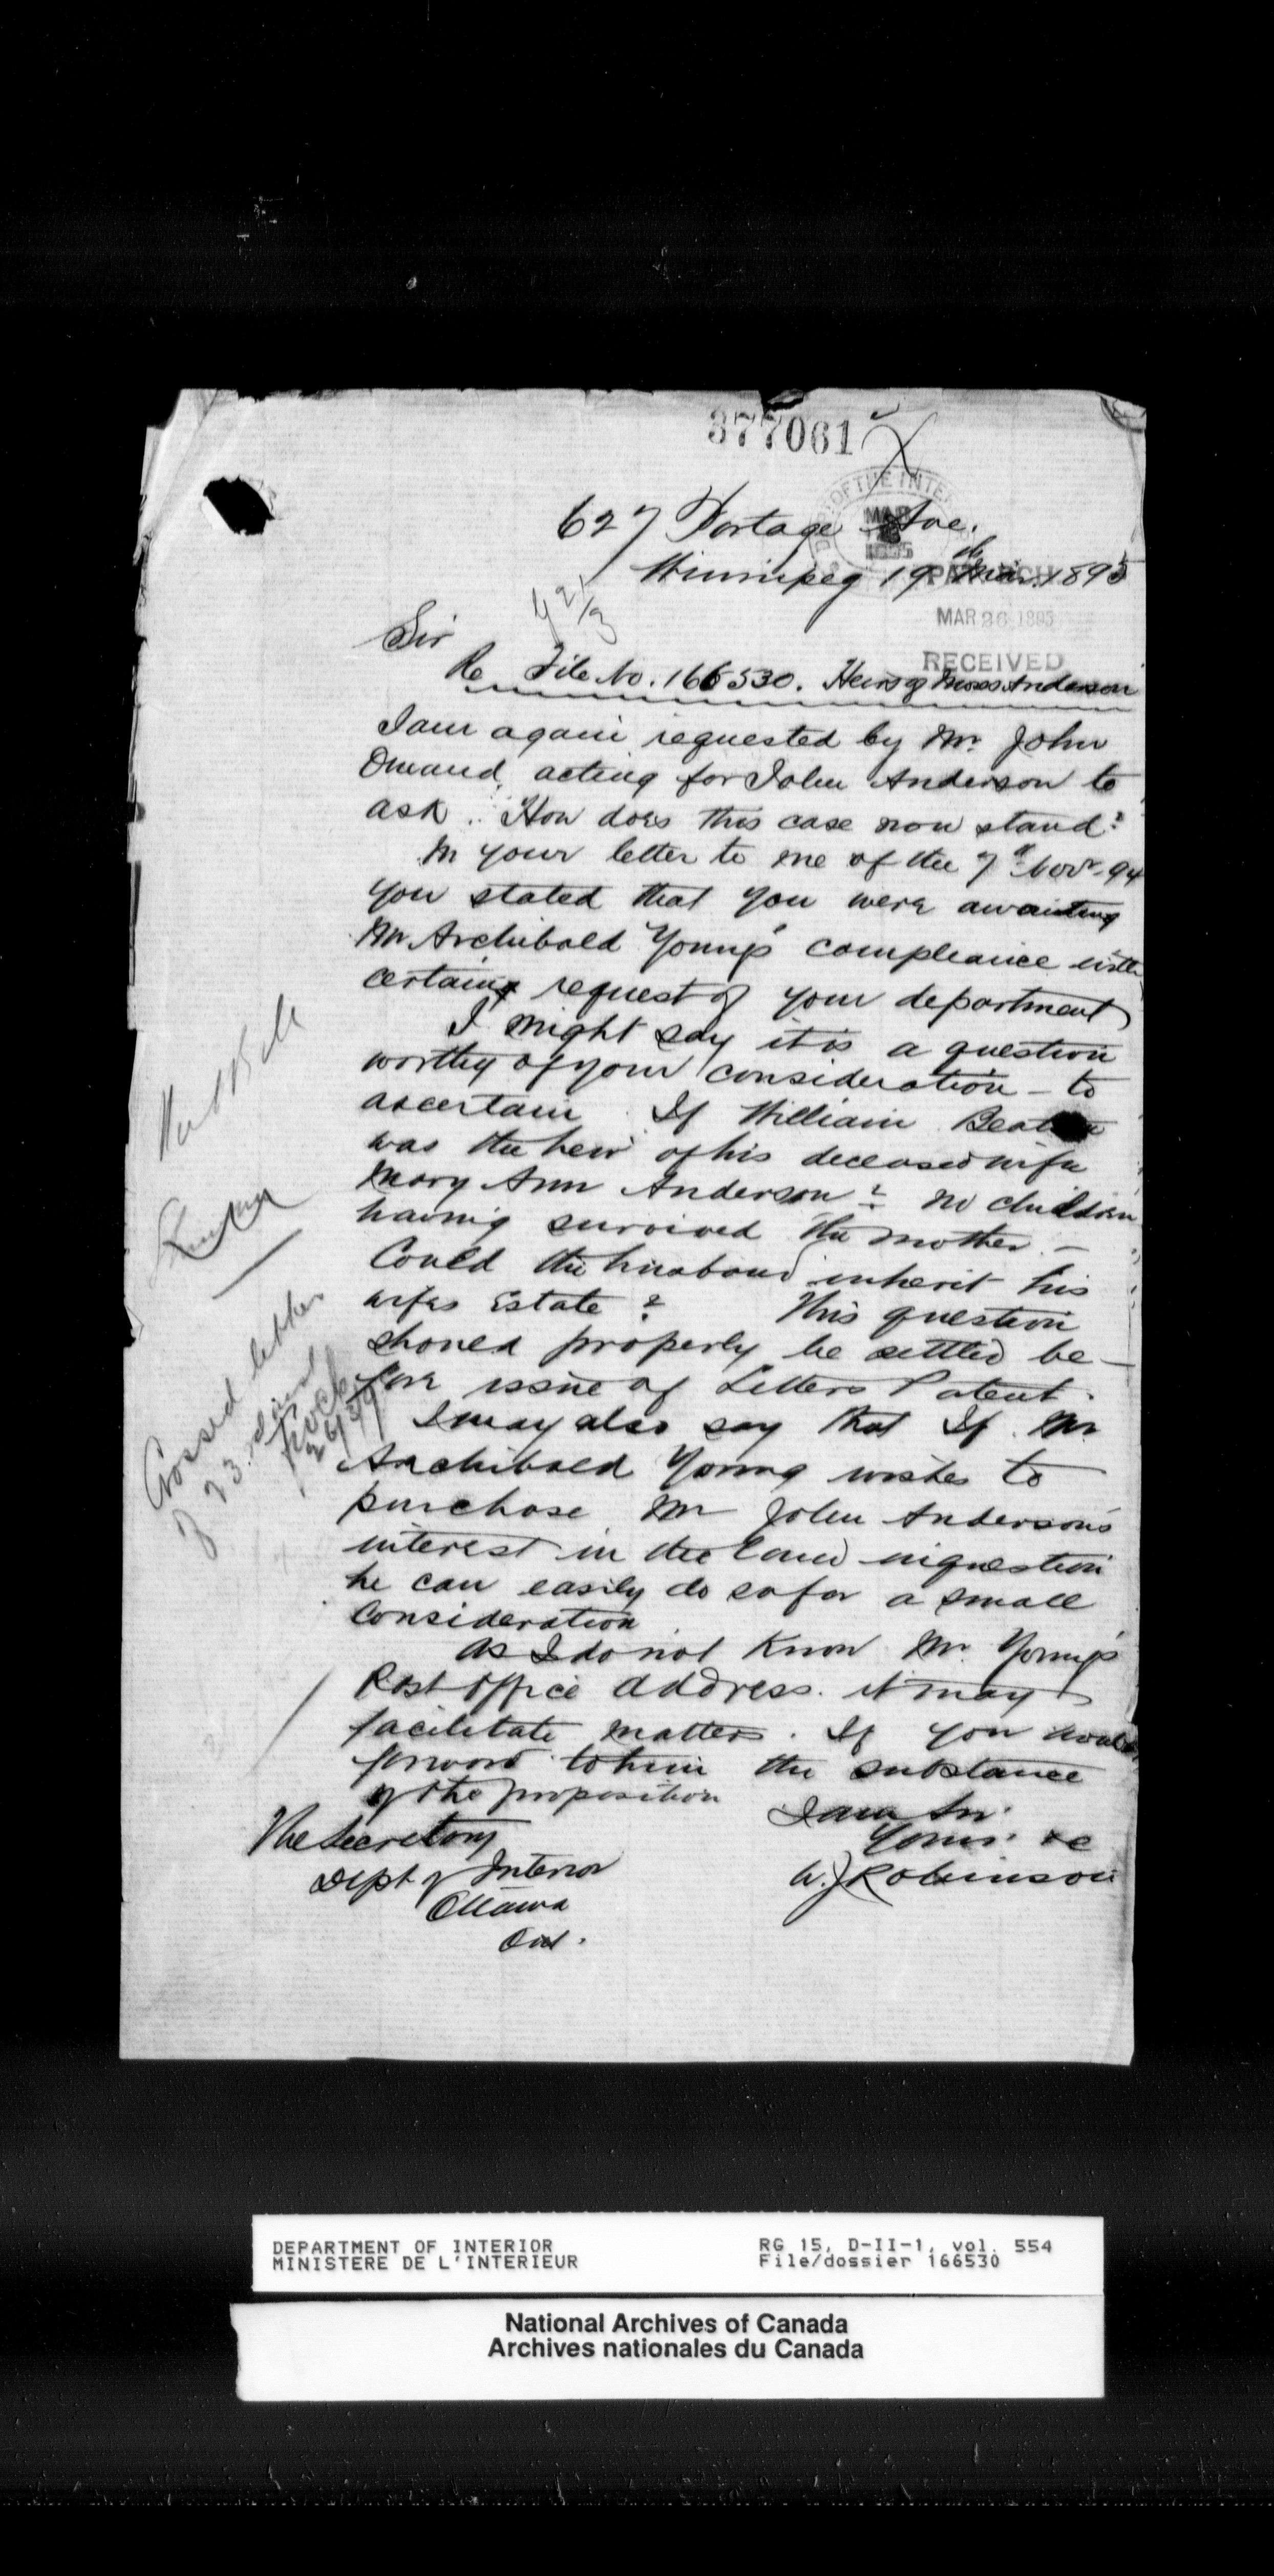 377061
627 Portage Ave.
Winnipeg 19th Mar. 1895
MAR 26 1895
RECEIVED
Sir
Re File No. 166530. Heirs of Moses Anderson
I am again requested by Mr. John
Omand, acting for John Anderson to
ask. How does this case now stand?
In your letter to me of the 7th Novr. 94
you stated that you were awaiting
Mr Archibald Young's compliance with
certain request of your department
I might say it is a question
worthy of your consideration - to
ascertain If William
was the heir of his deceased wife
Mary Ann Anderson? no children
having survived the mother. -
Could the husband inherit his
wifes Estate? This question
should properly be settled be-
fore issue of Letters Patent.
I may also say that If Mr.
Archibald Young wishes to
purchase Mr John Anderson's
interest in the land in question
he can easily do so for a small
consideration
As I do not know Mr. Young's
Post office address. it may
facilitate matters. If you would
forward to him the substance
of the proposition
I am Sir.
Yours. &c
W. J Robinson
The Secretary
Dept of Interior
Ottawa
Ont.
Crossed letter
of 23rd
DEPARTMENT OF INTERIOR
MINISTERE DE L'INTERIEUR
RG 15, D-II-1, vol. 554
File/dossier 166530
National Archives of Canada
Archives nationales du Canada